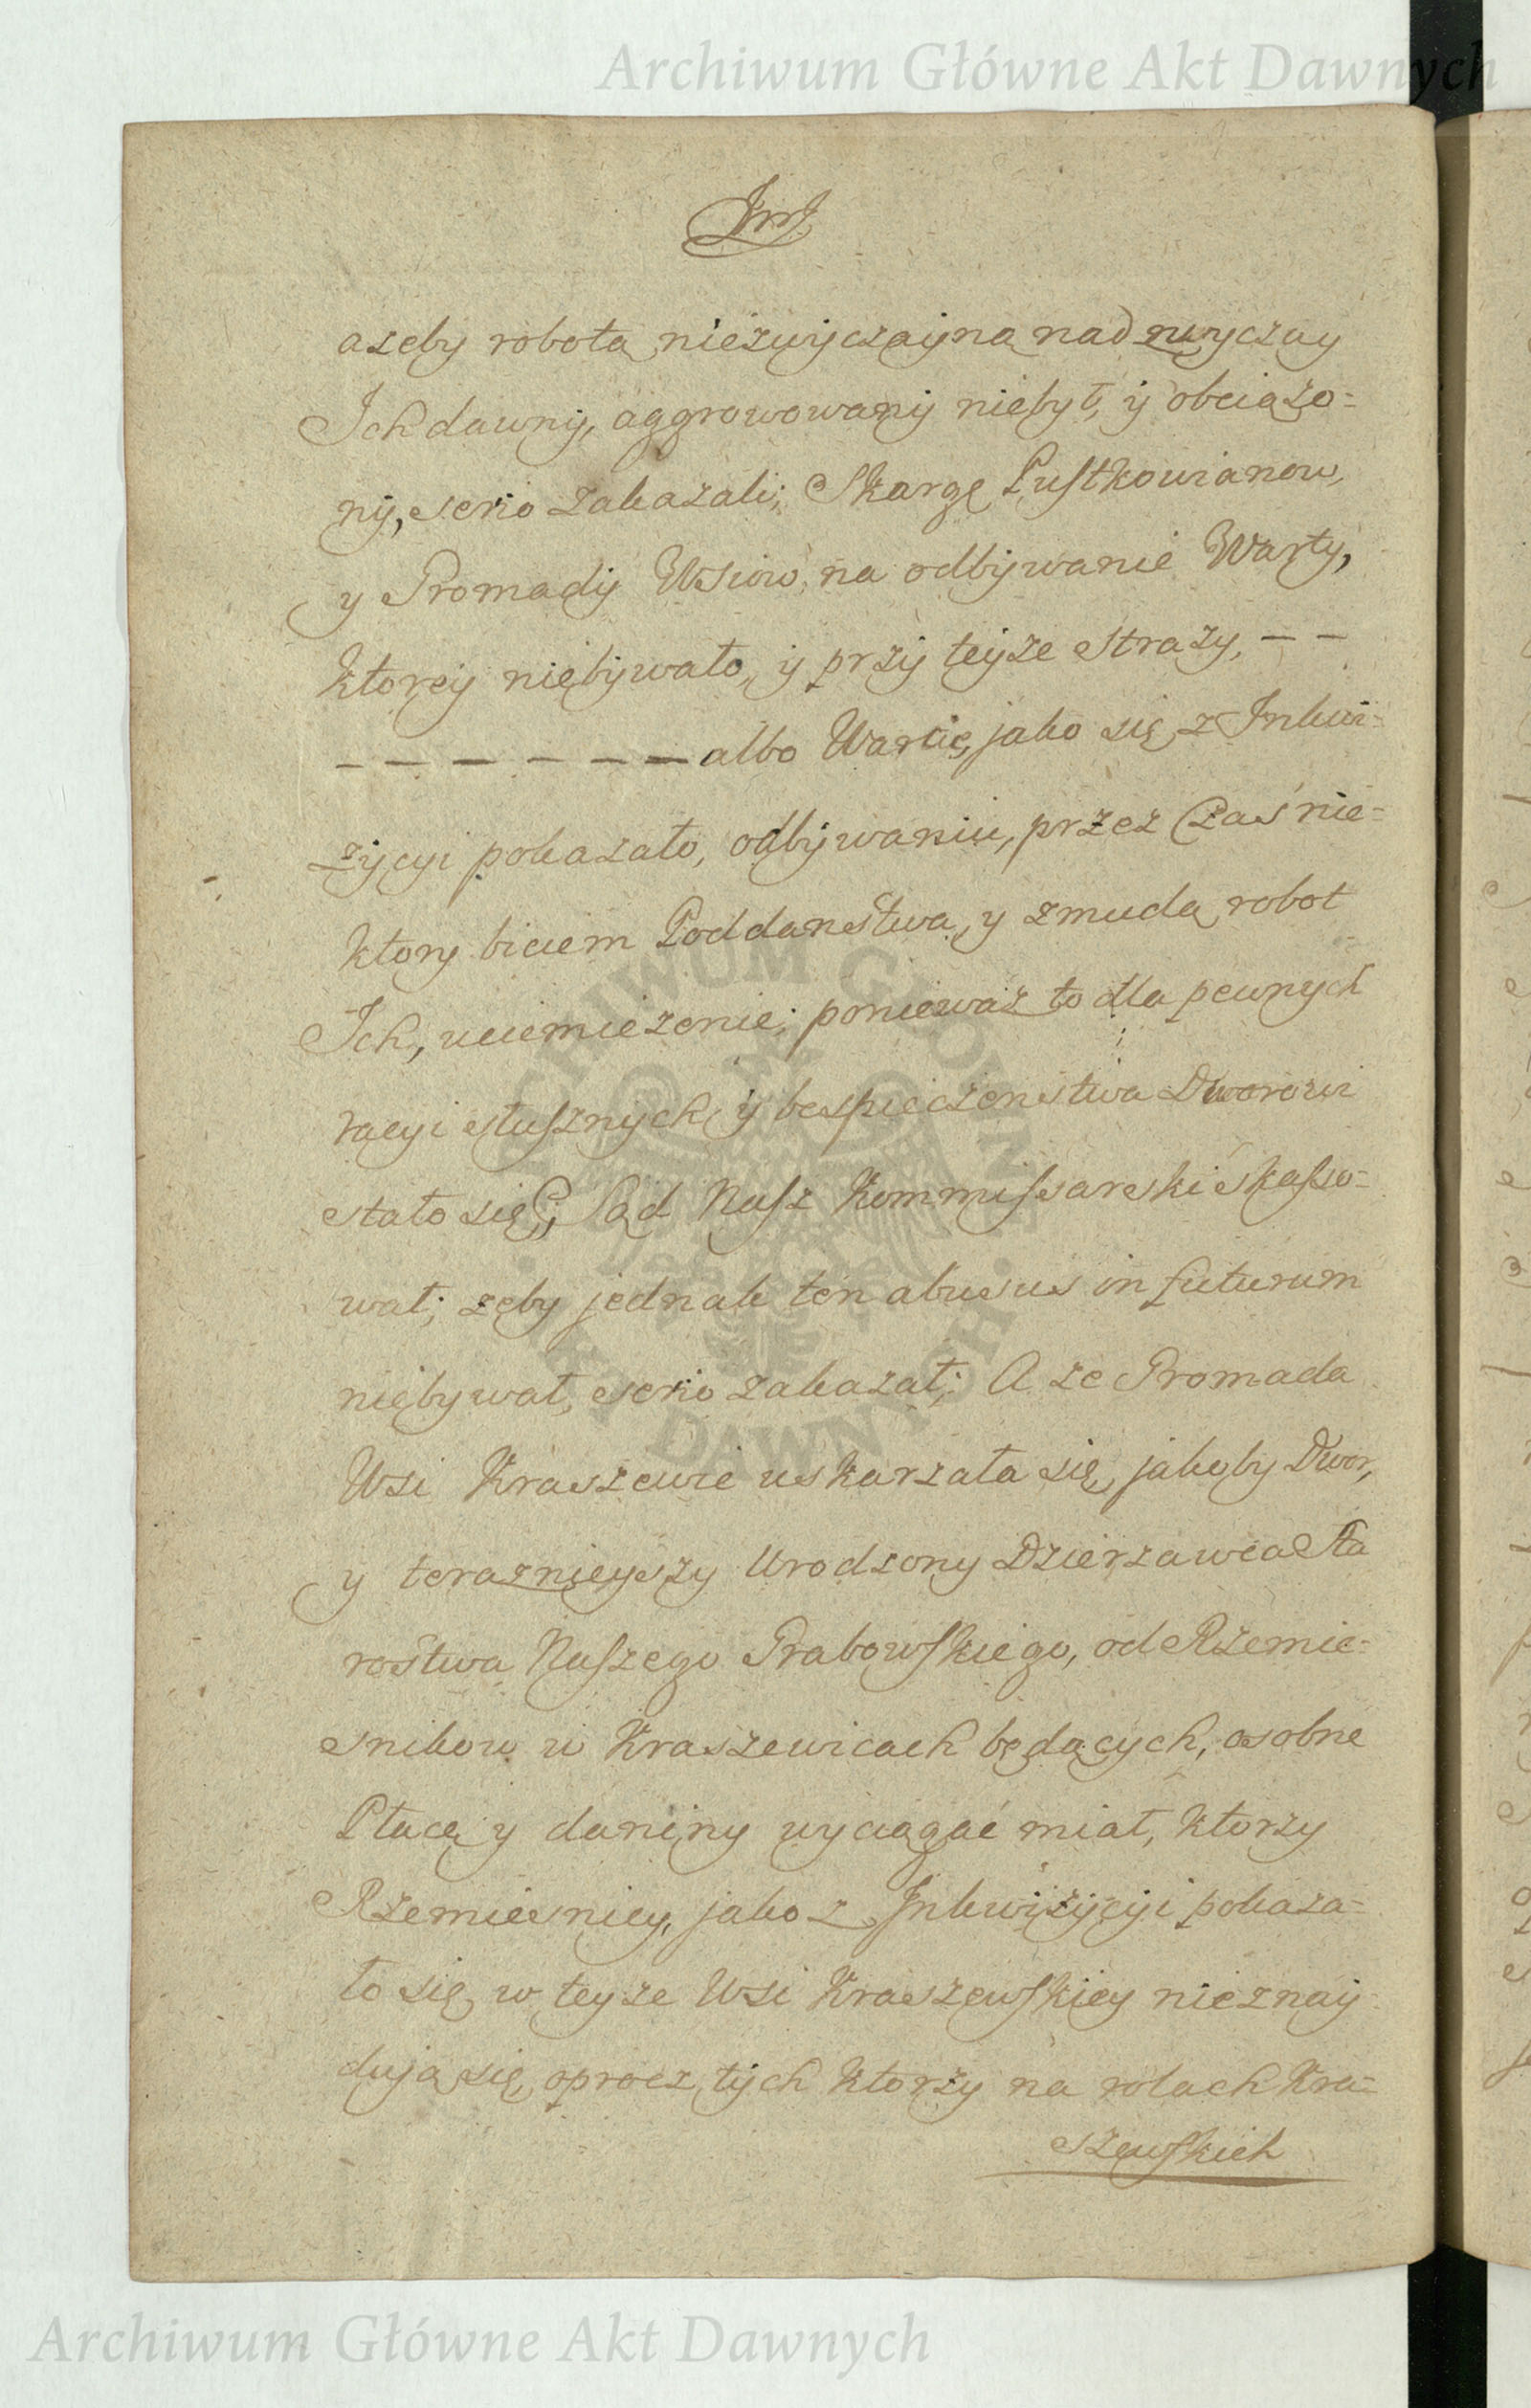 Archiwum Główne Akt Dawnych
azeby robotą niezwyczayną nad zwyczay
Ich dawny, aggrowowany niebył, y obciążo=
ny, serio zakazali; Skargę Pustkowianow,
y Gromady Wsiow, na odbywanie Warty,
ktorey niebywało, y przy teyże Straży, — —
— — — — — — albo Warcie, jako się z Inkwi=
zycyi pokazało, odbywaniu, przez Czas nie=
ktory biciem Poddanstwa, y zmudą robot
Ich, uciemiężenie; ponieważ to dla pewnych
racyi słusznych y bespieczenstwa Dworowi
stało się, Sąd Nasz Kommissarski skasso=
wał; zeby jednak ten abusus in futurum
niebywał, serio zakazał; A ze Gromada
Wsi Kraszewic uskarzała się, jakoby Dwor,
y teraznieyszy Urodzony Dzierzawca Sta
rostwa Naszego Grabowskiego, od Rzemie=
snikow w Kraszewicach będących, osobne
Płace y daniny wyciągać miał, ktorzy
Rzemiesnicy, jako z Inkwizycyi pokaza=
ło się, w teyze Wsi Kraszewskiey nieznay=
dują się, oprocz tych ktorzy na rolach Kra=
szewskich
ARCHIWUM GŁÓWNE AKT DAWNYCH
Archiwum Główne Akt Dawnych